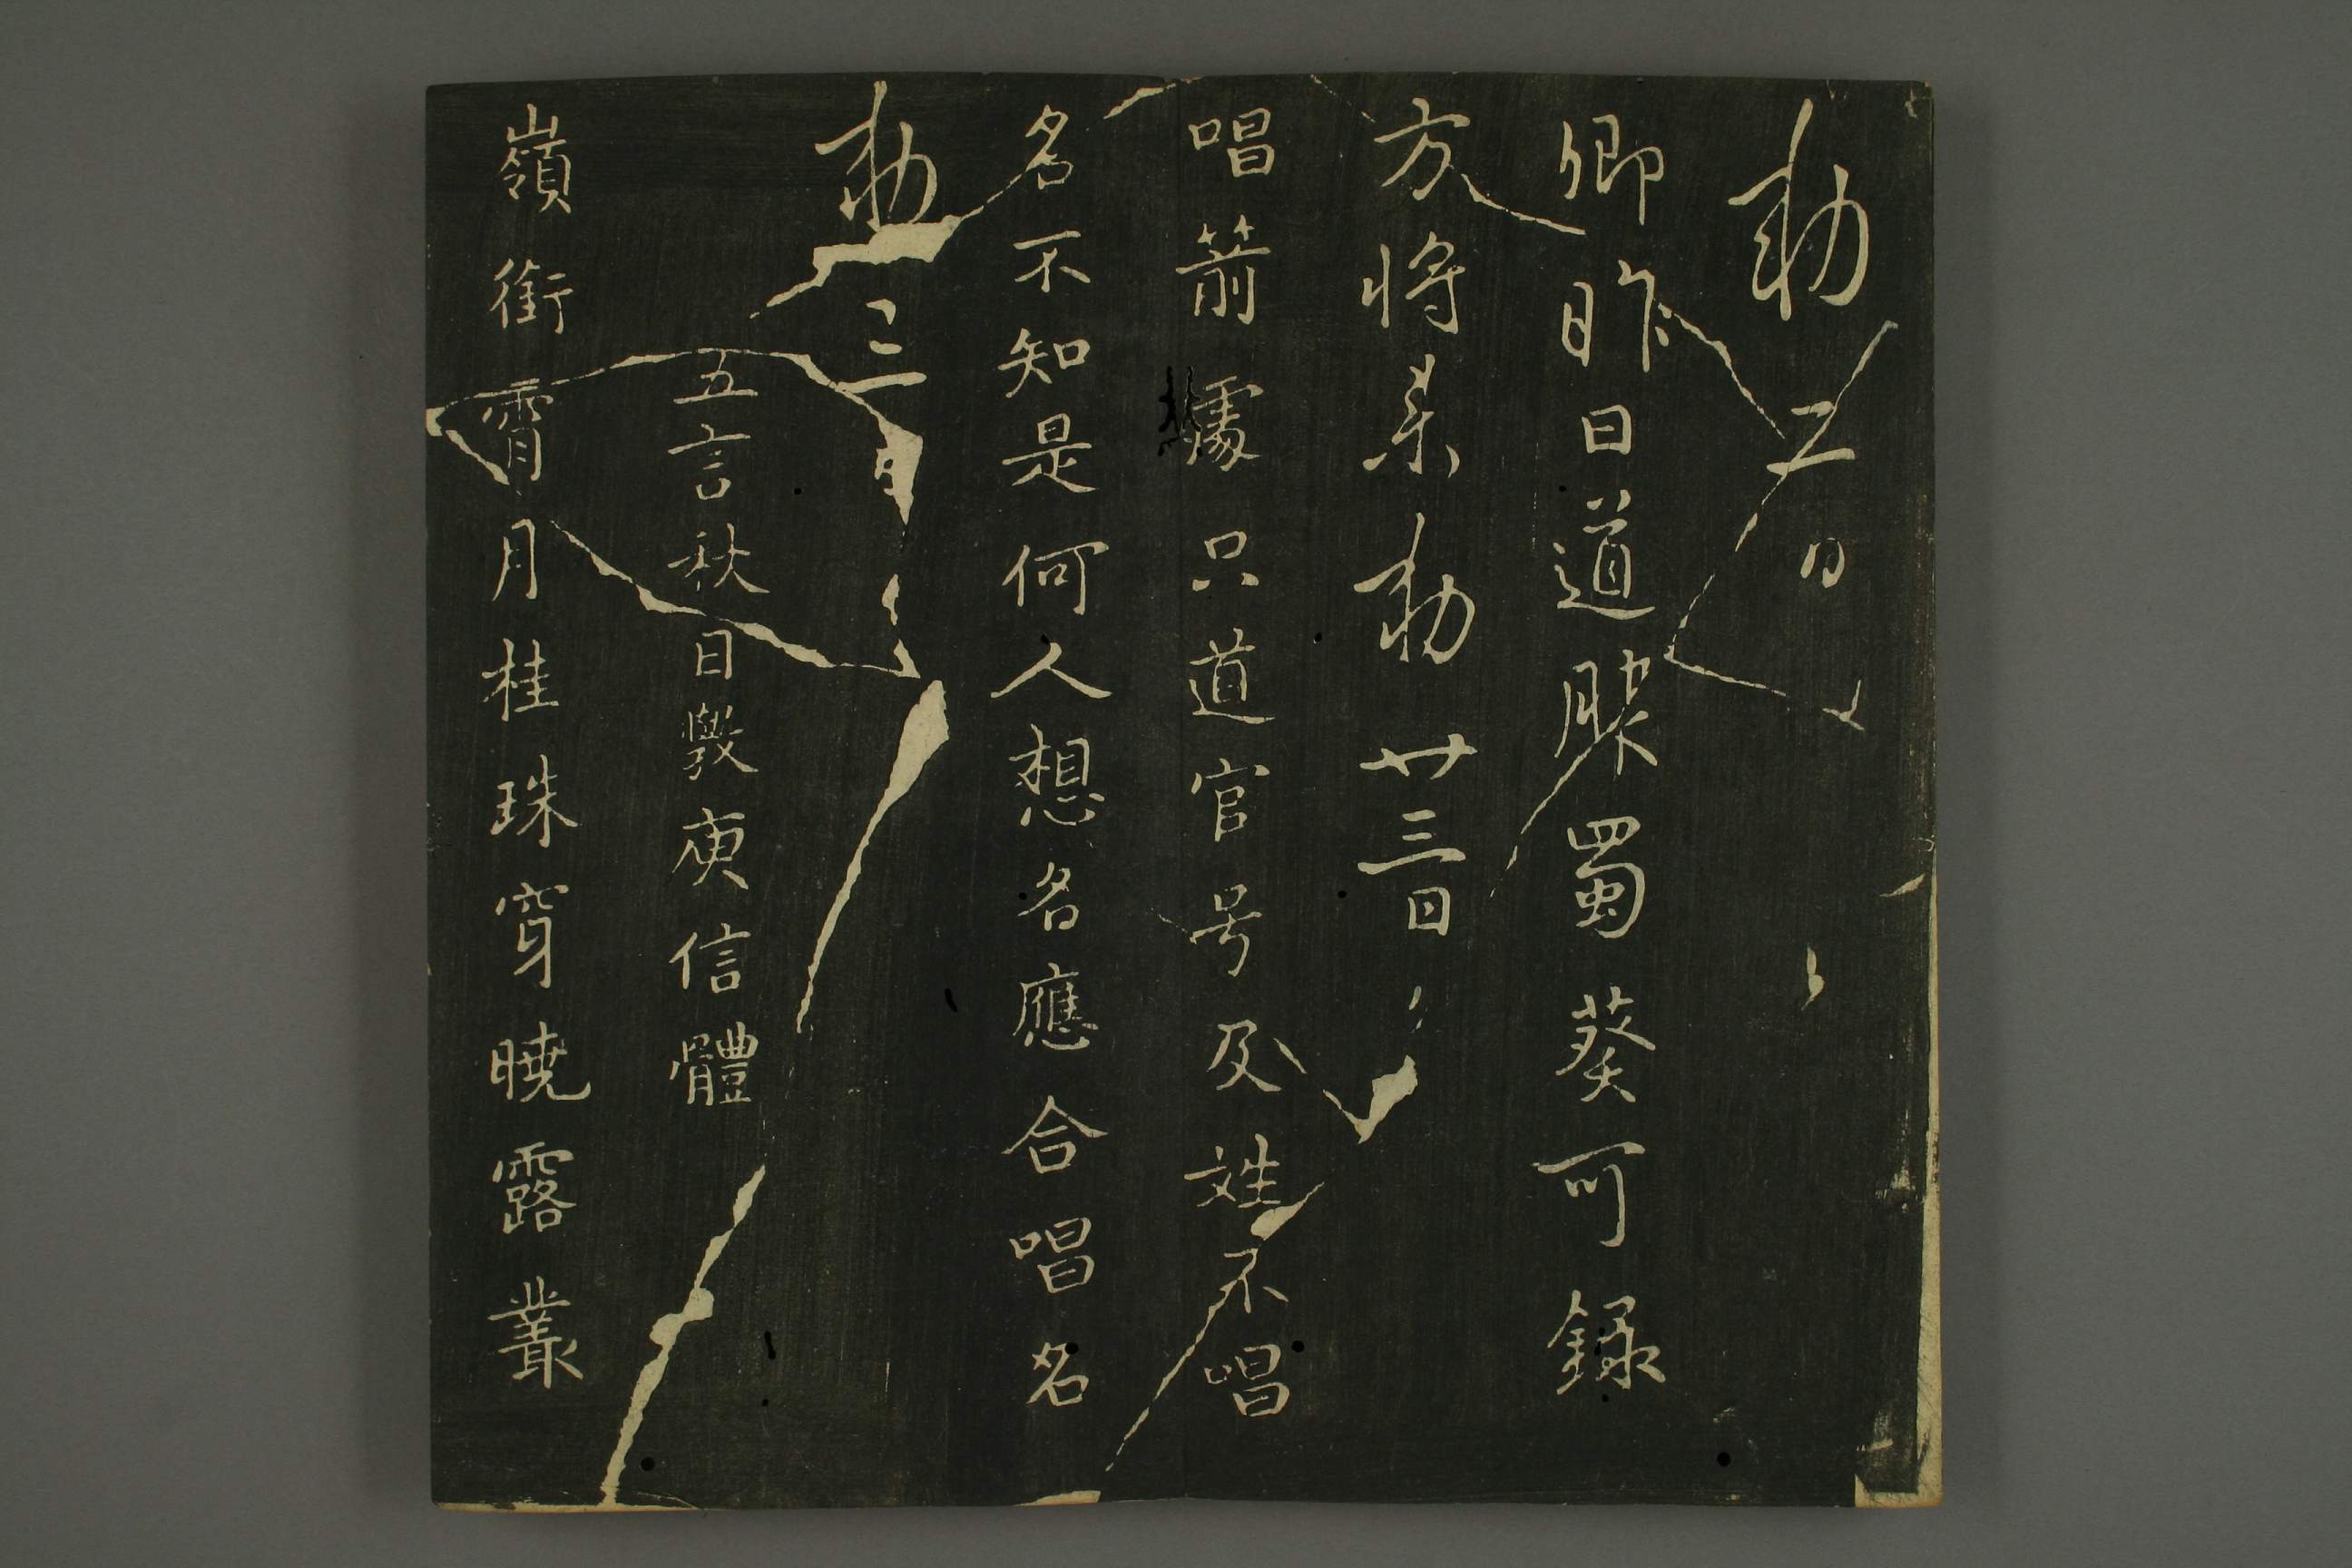 勅二日
卿昨日道蜀葵可録
方将来勅廿三日
唱箭處只道官号及姓不唱
名不知是何人想名應合唱名
勅三日
五言秋日斆庾信體
嶺銜霄月桂珠穿曉露叢